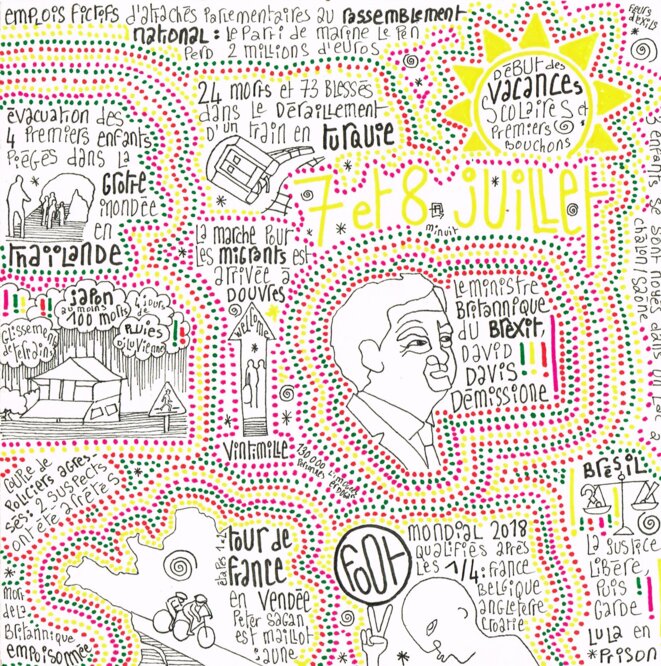 EMPLOIS FICTIFS d'attachés PARLEMENTAIRES AU RASSEMBLEMENT
NATIONAL : LE PARTI DE MARINE LE PEN
PERD 2 MILLIONS d'EUROS
DÉBUT DES
VACANCES
SCOLAIRES et
PREMIERS
BOUCHONS
24 MORTS Et 73 BLESSÉS
DANS LE DÉRAILLEMENT
D'UN TRAIN EN TURQUIE
ÉVACUATION DES
4 PREMIERS ENFANTS
PIÉGÉS DANS LA
GROTTE
INONDÉE
EN
THAÏLANDE
7 et 8 JUILLET
MINUIT
3 ENFANTS SE SONT NOYÉS DANS UN LAC À
CHALON/SAÔNE
LA MARCHE POUR
LES MIGRANTS ESt
ARRIVÉE À
DOUVRES
WELCOME
VINTIMILLE
JAPON
AU MOINS
100 MORTS
4 JOURS
DE
PLUIES
DILUVIENNES
GLISSEMENT
DE TERRAINS
LE MINISTRE
BRITANNIQUE
DU BREXIT
DAVID
DAVIS
DÉMISSIONE
POLICIERS AGRES
SÉS : 2 SUSPECTS
ONT ÉTÉ ARRÊTÉS
MORT
DE LA
BRITANNIQUE
EMPOISONNÉE
TOUR DE
FRANCE
EN VENDÉE
PETER SAGAN
EST MAILLOT
JAUNE
FOOT
MONDIAL 2018
QUALIFIÉS APRÈS
LES 1/4 : FRANCE
BELGIQUE
ANGLETERRE
CROATIE
BRÉSIL
LA JUSTICE
LIBÈRE,
PUIS
GARDE
LULA EN
PRISON